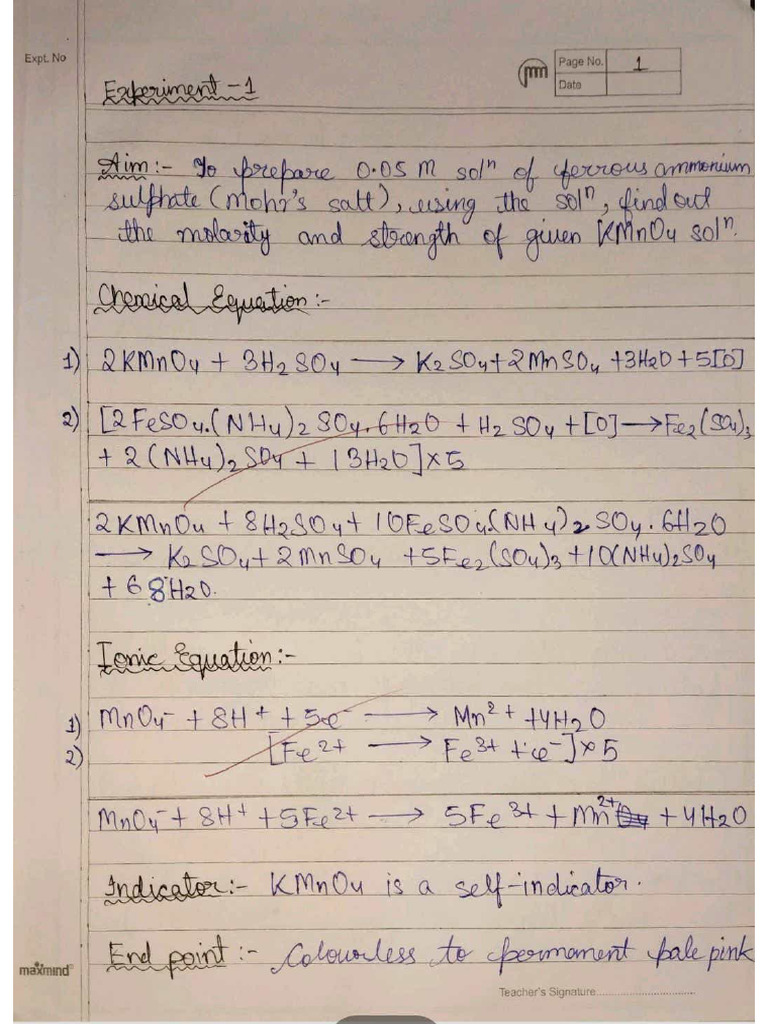 Expt. No
Page No. 1
Date
Experiment - 1
Aim:- To prepare 0.05 M solⁿ of ferrous ammonium
sulphate (Mohr's salt), using the solⁿ, find out
the molarity and strength of given KMnO4 solⁿ.
Chemical Equation:-
1) 2KMnO4 + 3H2SO4 ⟶ K2SO4 + 2MnSO4 + 3H2O + 5[O]
2) [2FeSO4.(NH4)2SO4.6H2O + H2SO4 + [O] ⟶ Fe2(SO4)3
+ 2(NH4)2SO4 + 13H2O] × 5
2KMnO4 + 8H2SO4 + 10FeSO4.(NH4)2SO4.6H2O
⟶ K2SO4 + 2MnSO4 + 5Fe2(SO4)3 + 10(NH4)2SO4
+ 68H2O.
Ionic Equation:-
1) MnO4⁻ + 8H⁺ + 5e⁻ ⟶ Mn²⁺ + 4H2O
2) [Fe²⁺ ⟶ Fe³⁺ + e⁻] × 5
MnO4⁻ + 8H⁺ + 5Fe²⁺ ⟶ 5Fe³⁺ + Mn²⁺ + 4H2O
Indicator:- KMnO4 is a self-indicator.
End point:- Colourless to permament pale pink
maxmind
Teacher's Signature